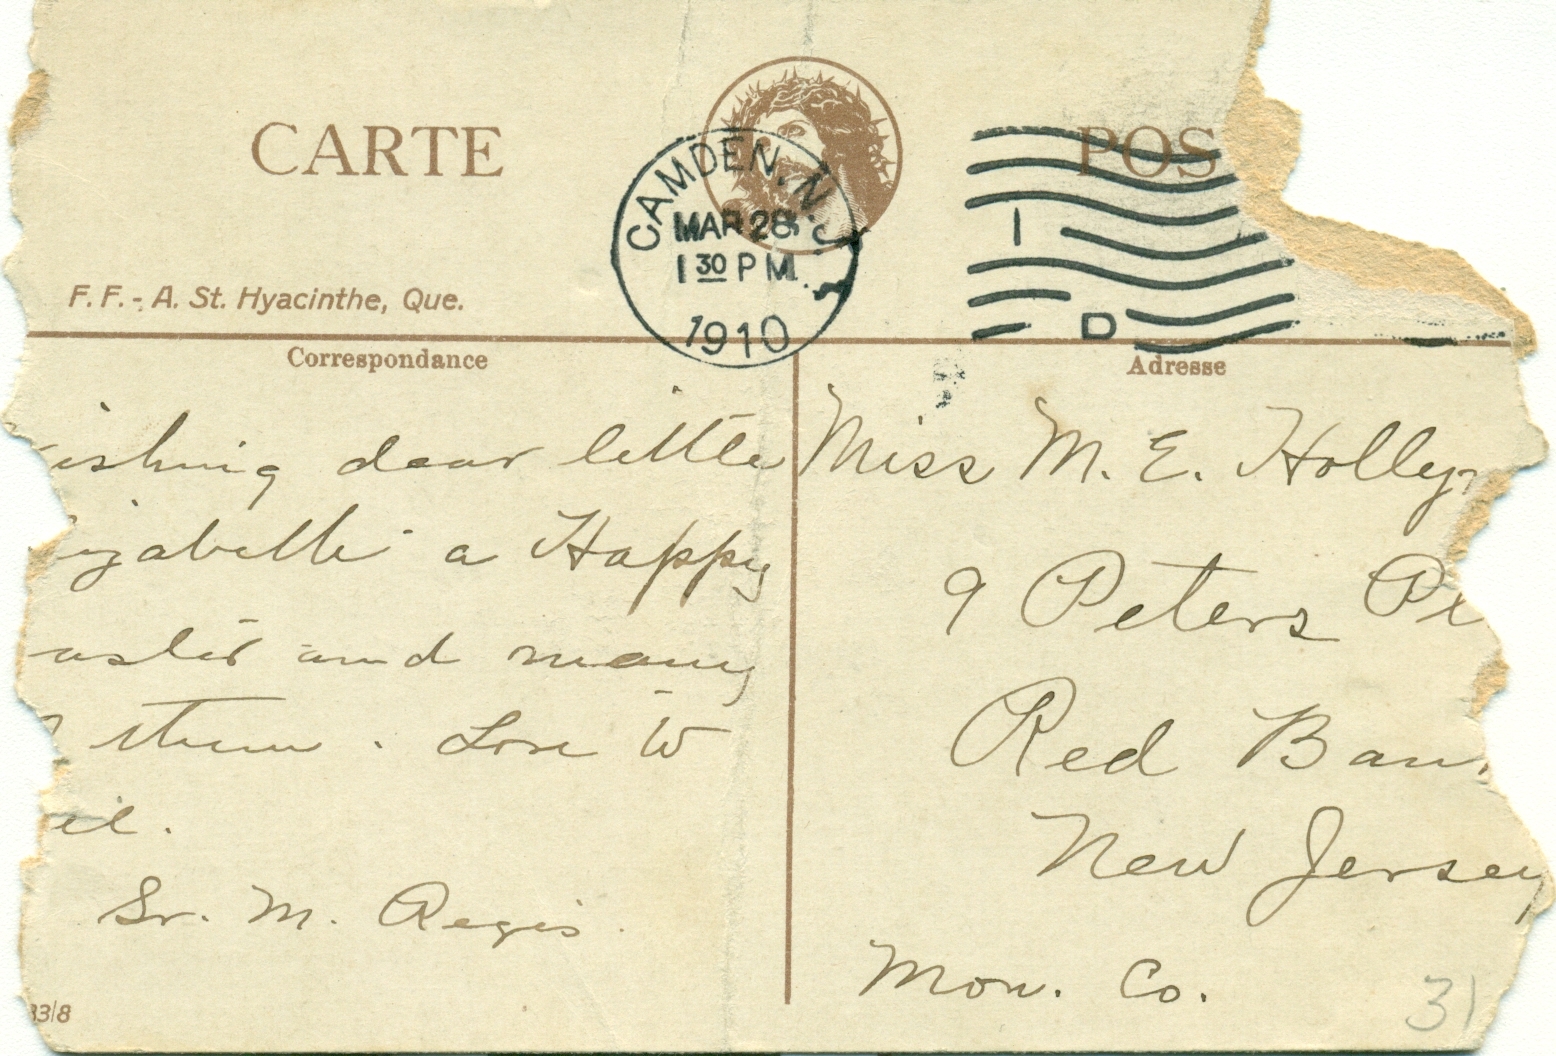 CARTE POS
CAMDEN, N.J.
MAR 28
1 30 PM
1910
1
D
F. F. - A. St. Hyacinthe, Que.
Correspondance
ishing dear little
izabeth a Happy
aster and many
them. Love to
il.
Sr. M. Regis
33/8
Adresse
Miss M. E. Holly
9 Peters Pl
Red Ban
New Jersey
Mon. Co.
31